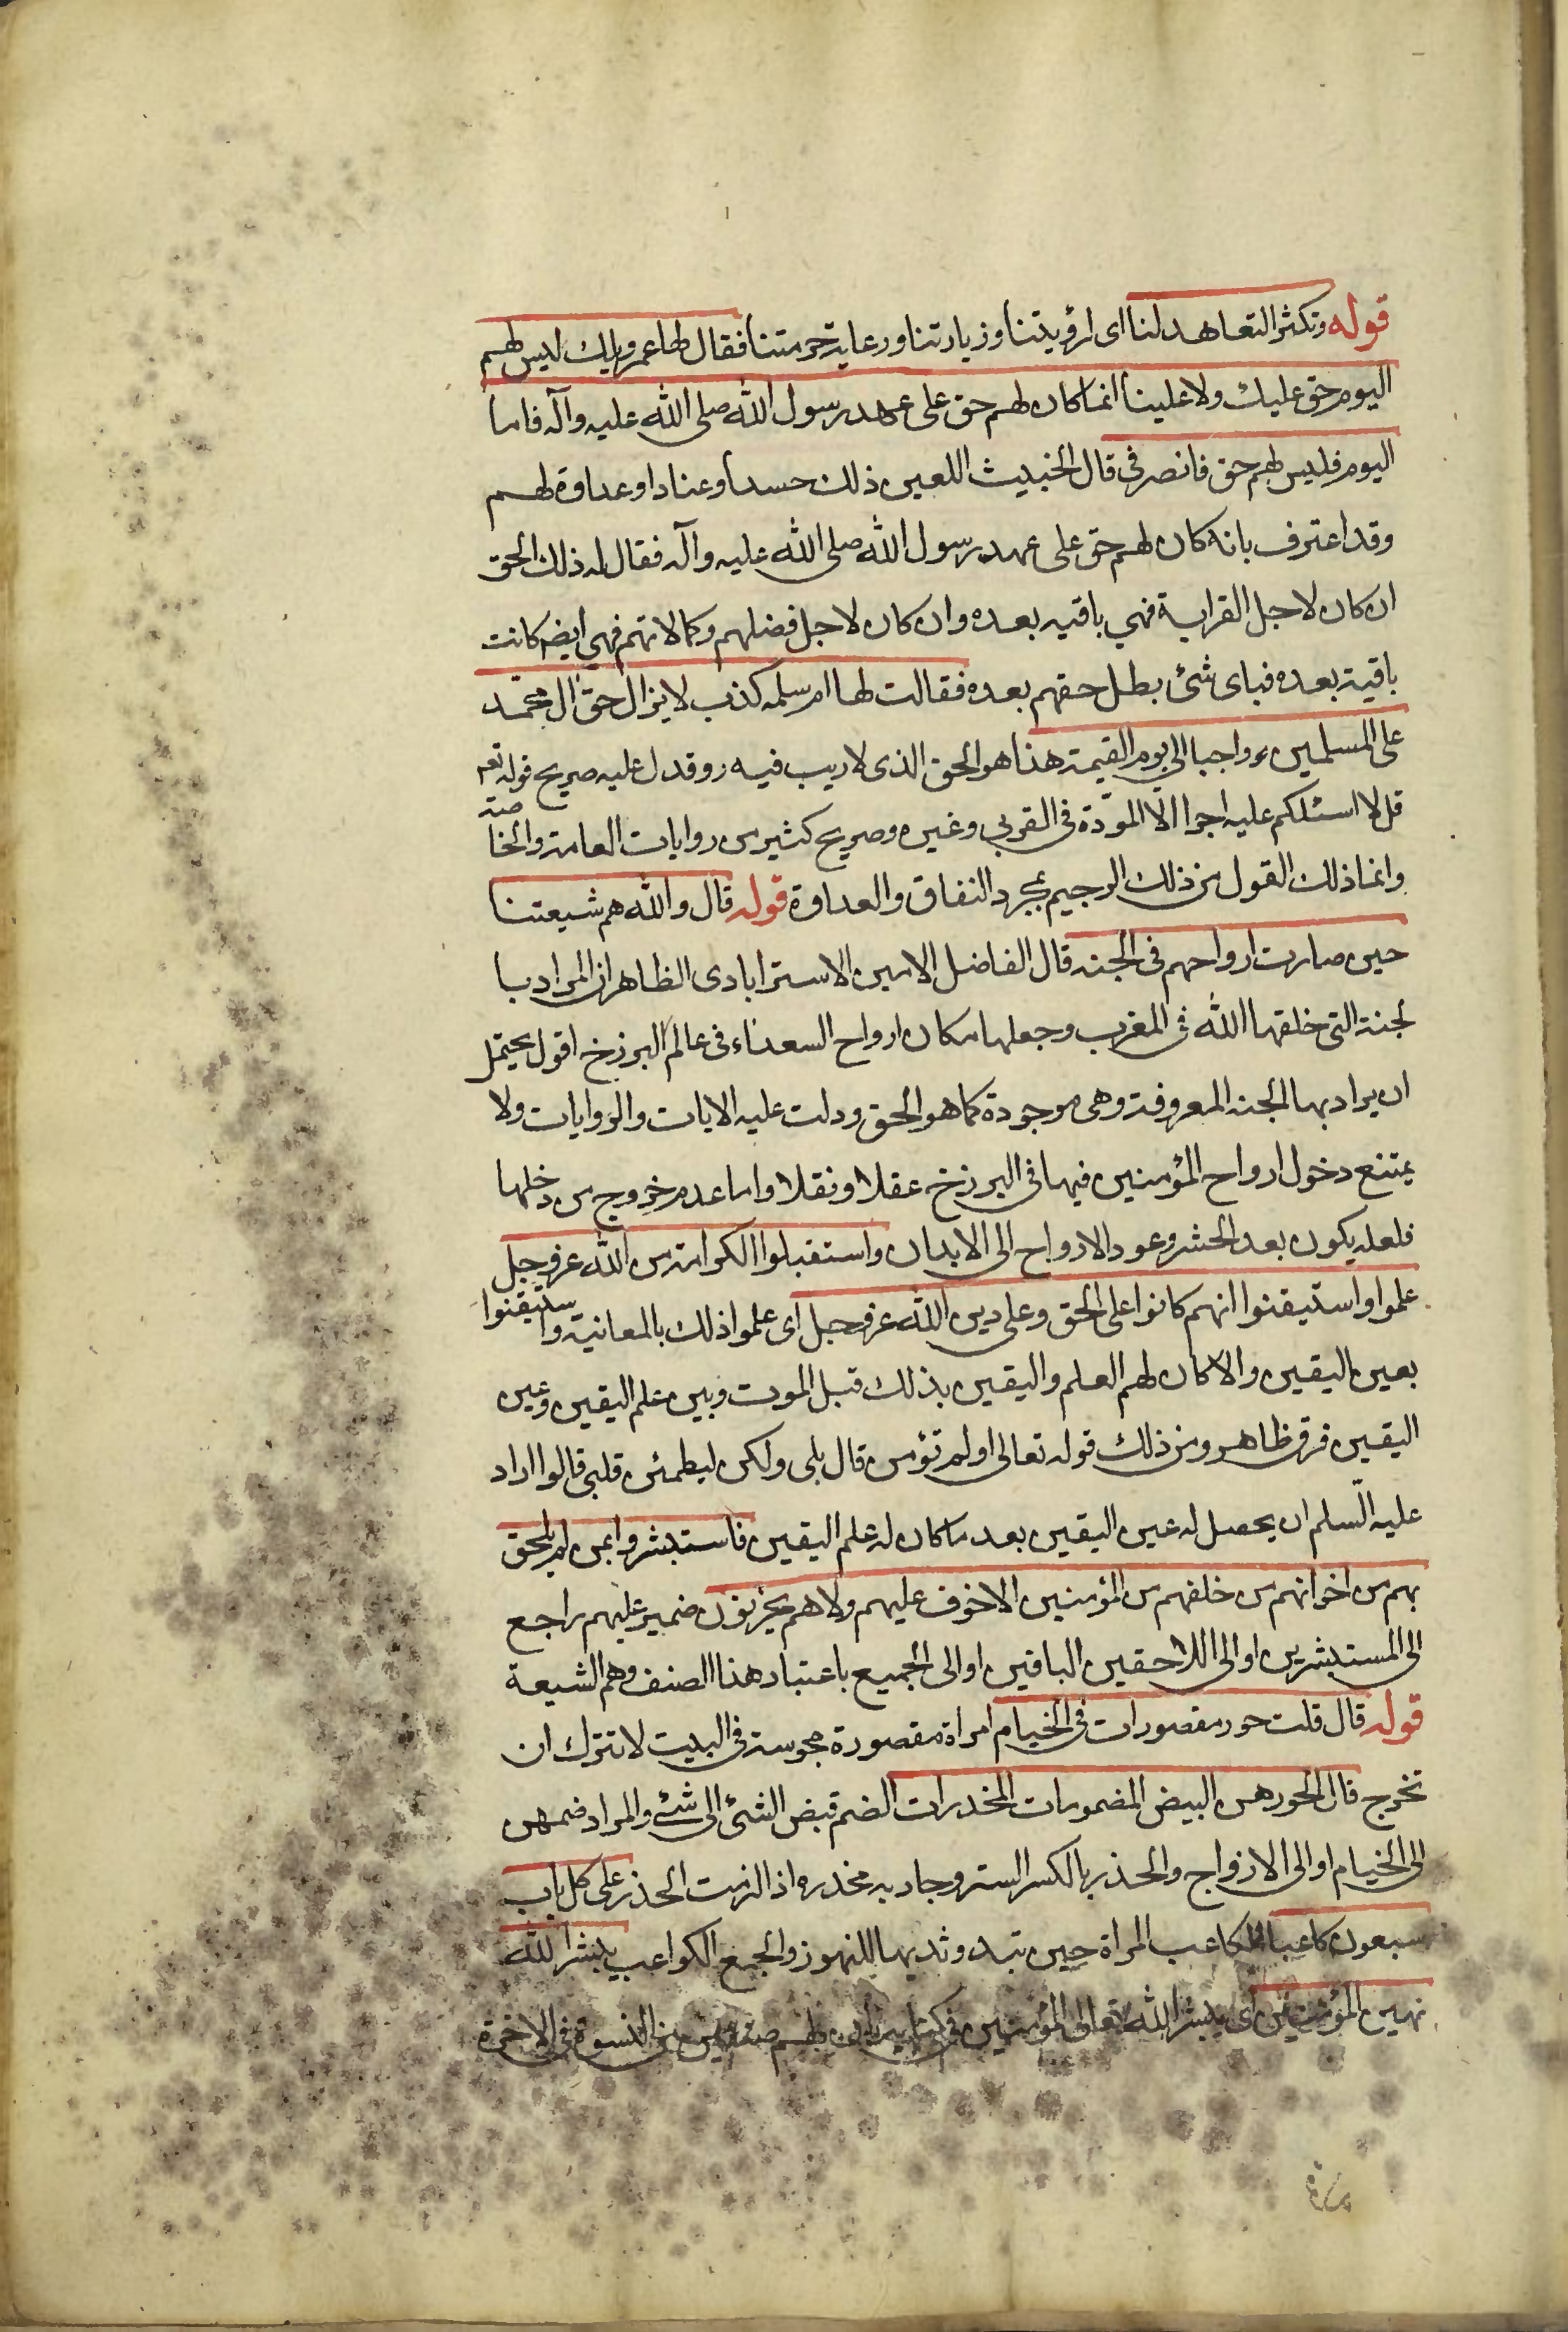 قوله وتكثر التعاهد لنا اى لرؤيتنا وزيارتنا ورعاية حرمتنا فقال لها عمر ويلك ليس لهم
اليوم حق عليك ولا علينا انما كان لهم حق على عهد رسول الله صلى الله عليه وآله فاما
اليوم فليس لهم حق فانصرفى قال الخبيث اللعين ذلك حسدا وعنادا وعداوة لهم
وقد اعترف بانه كان لهم حق على عهد رسول الله صلى الله عليه وآله فقال له ذلك الحق
ان كان لاجل القرابة فهي باقيه بعده وان كان لاجل فضلهم وكمالاتهم فهي ايضم كانت
باقية بعده فباى شئ بطل حقهم بعده فقالت لها ام سلمه كذب لا يزال حق آل محمّد
على المسلمين واجبا الى يوم القيمة هذا هو الحق الذى لا ريب فيه وقد دل عليه صريح قوله تعم
قل لا اسئلكم عليه اجرا الّا المودّة فى القربى وغيره وصريح كثير من روايات العامة والخا
صة
وانما ذلك القول من ذلك الرجيم بمجرد النفاق والعداوة قوله قال والله هم شيعتنا
حين صارت ارواحهم فى الجنه قال الفاضل الامين الاسترابادى الظاهر ان المراد با
لجنة التى خلقها الله فى المغرب وجعلها مكان ارواح السعداء فى عالم البرزخ اقول يحتمل
ان يراد بها الجنه المعروفة وهى موجودة كما هو الحق ودلت عليه الايات والروايات ولا
يمتنع دخول ارواح المؤمنين فيها فى البرزخ عقلا ونقلا واما عدم خروج من دخلها
فلعله يكون بعد الحشر وعود الارواح الى الابدان واستقبلوا الكرامة من الله عز وجل
علموا واستيقنوا انهم كانوا على الحق وعلى دين الله عز وجل اى علموا ذلك بالمعانية واستيقنوا
بعين اليقين والا كان لهم العلم واليقين بذلك قبل الموت وبين علم اليقين وعين
اليقين فرق ظاهر ومن ذلك قوله تعالى اولم تؤمن قال بلى ولكن ليطمئن قلبى قالوا اراد
عليه السّلم ان يحصل له عين اليقين بعد ما كان له علم اليقين فاستبشروا بمن لم يلحق
بهم من اخوانهم من خلفهم من المؤمنين الا خوف عليهم ولا هم يحزنون ضمير عليهم راجع
الى المستبشرين او الى اللاحقين الباقين او الى الجميع باعتبار هذا الصنف وهم الشيعة
قوله قال قلت حور مقصورات فى الخيام امراة مقصورة محبوسة فى البيت لا تترك ان
تخرج قال الحور هن البيض المضمومات المخدرات الضم قبض الشئ الى شئ والمراد ضمهن
الى الخيام او الى الازواج والخدر بالكسر الستر وجاريه مخدره اذا لزمت الخدر على كل باب
سبعون كاعبا الكاعب المراة حين تبدو ثديها للنهوز والجمع الكواعب يبشر الله
بهن المؤمنين اى يبشر الله تعالى المؤمنين فى كتابه بان لهم صنفين من النسوة فى الاخرة